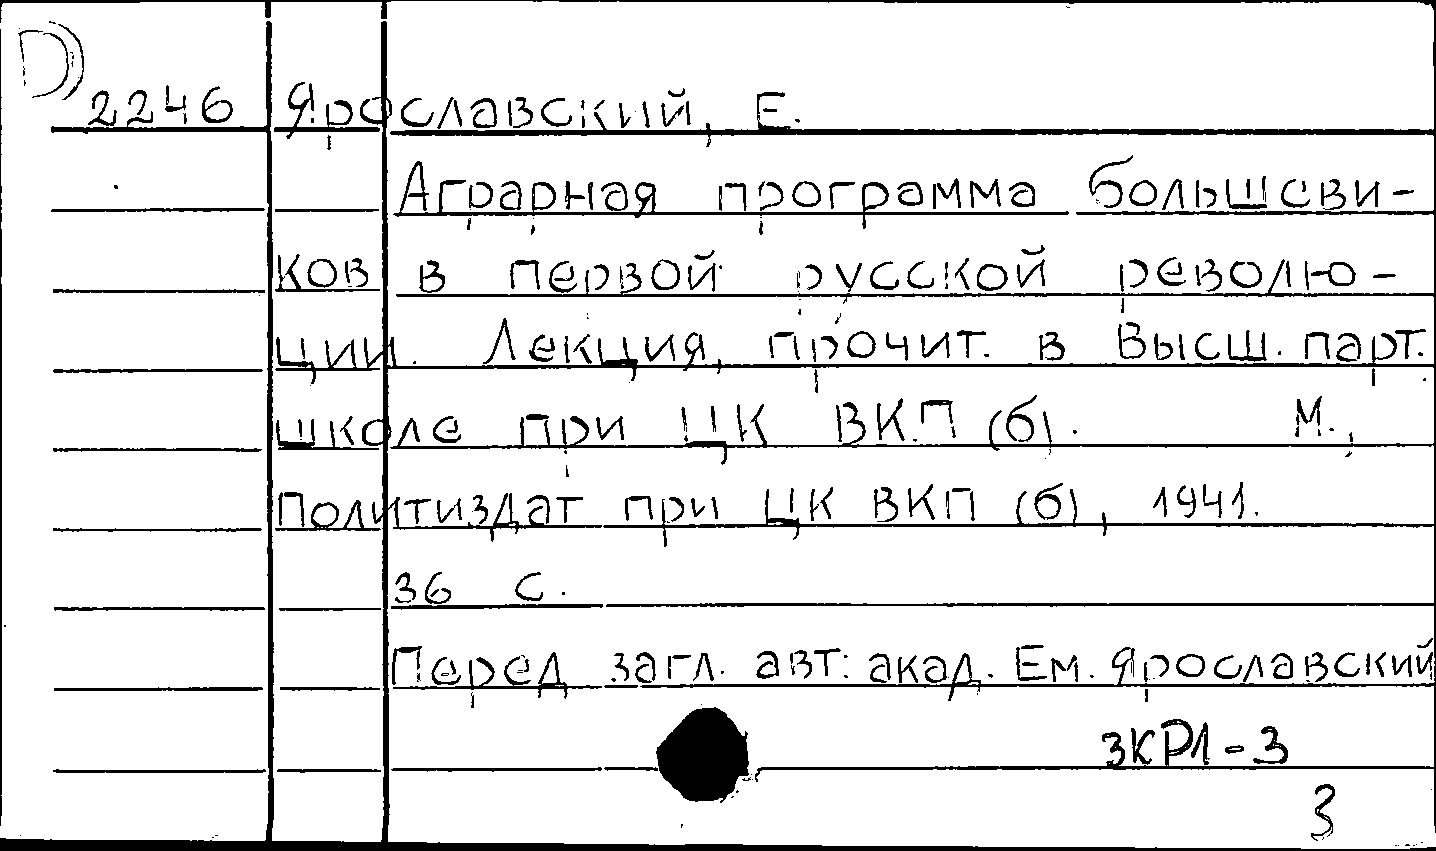 D
2246 Ярославский, Е.
Аграрная программа большеви-
ков в первой русской револю-
ции. Лекция, прочит. в Высш. парт.
школе при ЦК ВКП (б). М.,
Политиздат при ЦК ВКП (б), 1941.
36 с.
Перед загл. авт: акад. Ем. Ярославский
3КР1-3
3